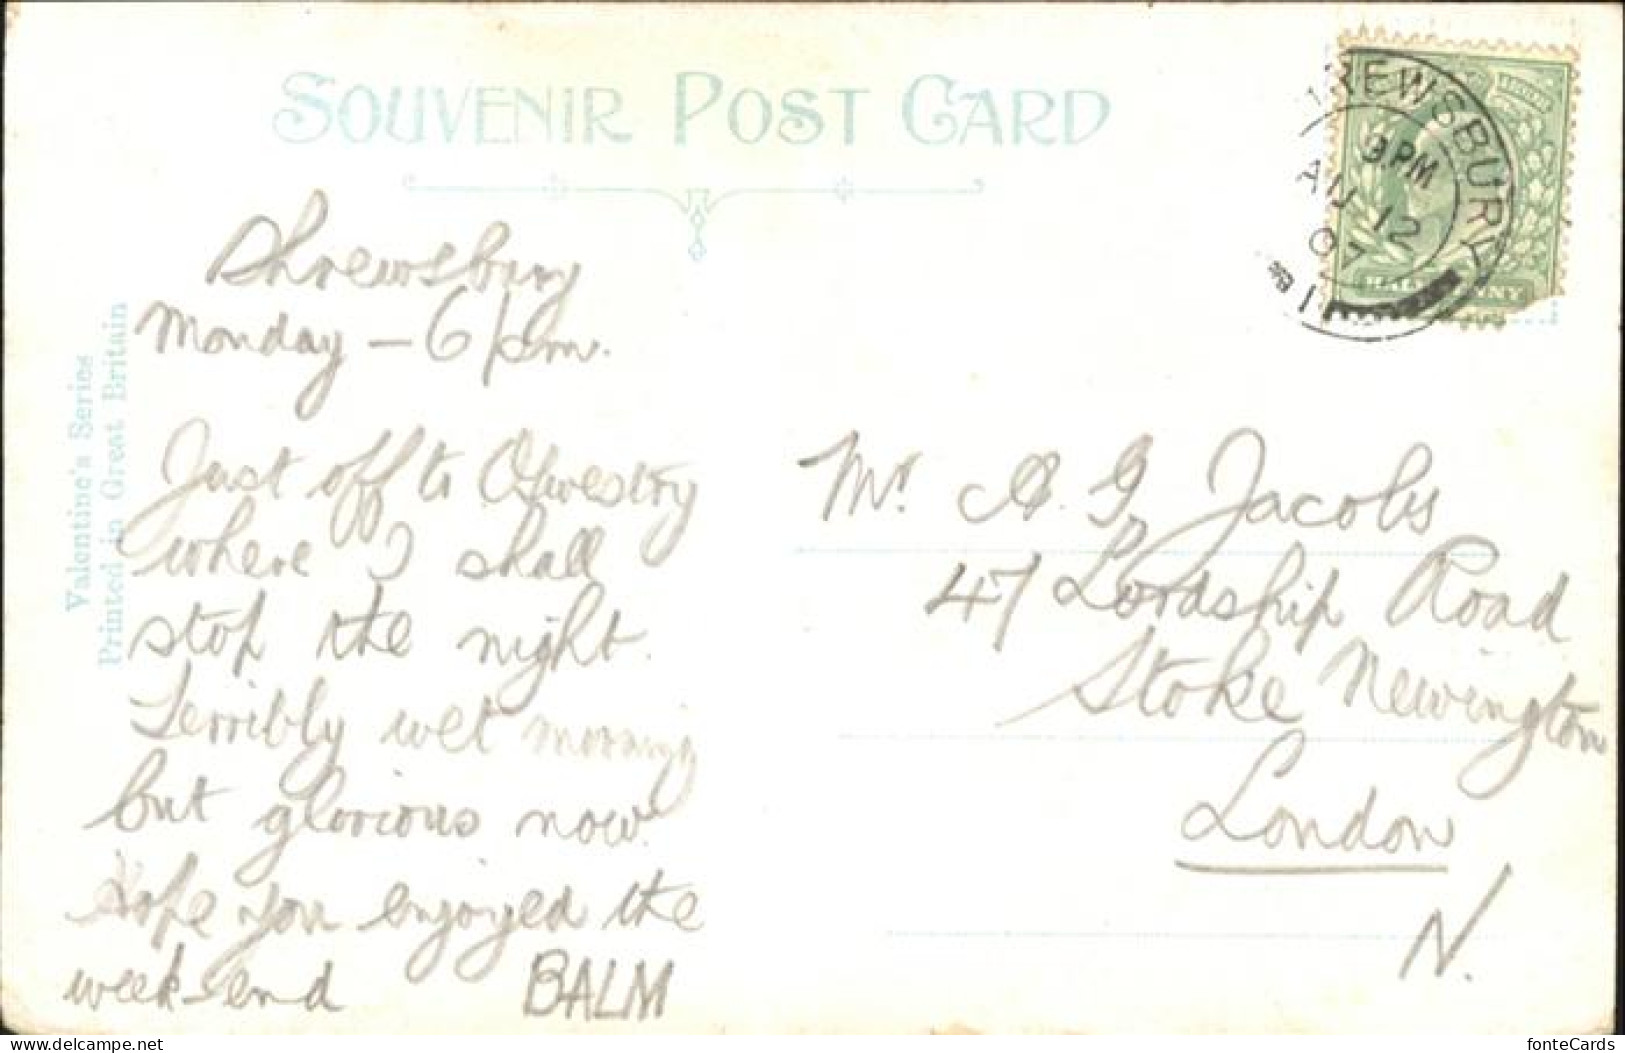 SOUVENIR POST CARD
REWSBURY
9 PM
AU 12
07
HALFPENNY
Valentine's Series
Printed in Great Britain
Shrewsbury
Monday – 6 pm.
Just off to Oswestry
where I shall
stop the night.
Terribly wet morning
but glorious now.
Hope you enjoyed the
week-end BALM
Mr. A. G. Jacobs
47 Lordship Road
Stoke Newington
London
N.
delcampe.net
fonteCards